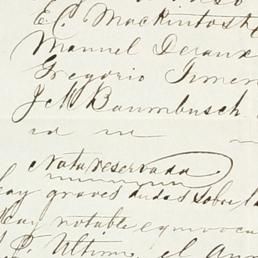 E. C. Mackintosh
Manuel
Gregorio
J M Baumbusch
id id
Nota reservada
hay graves dudas sobre la
Hay notable equivoca
Ultimo, el